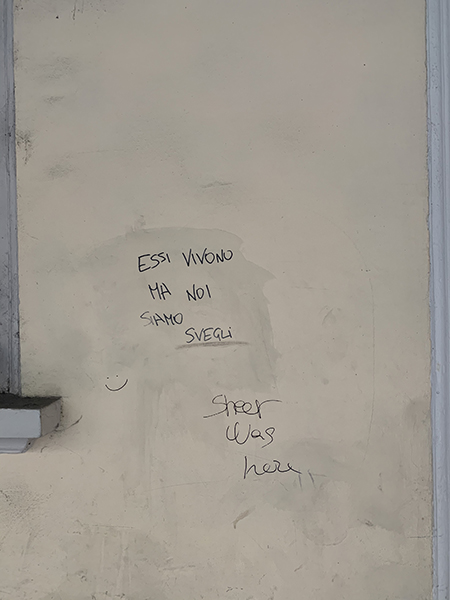 ESSI VIVONO
MA NOI
SIAMO
SVEGLI
Sheer
Was
here